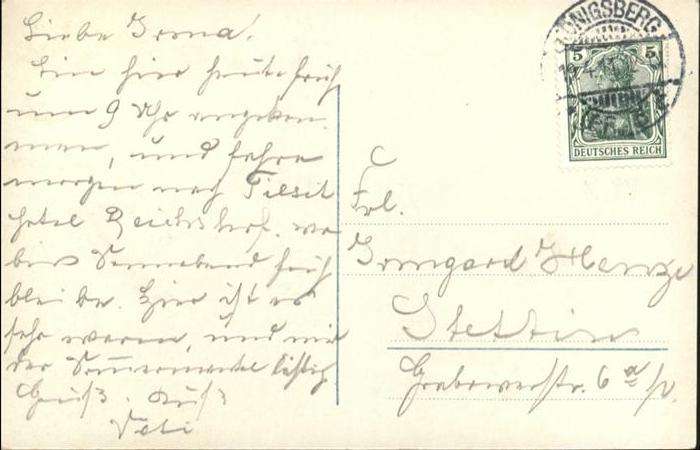 Liebe Irma!
Bin hier heute früh
um 9 Uhr angekom
men, und fahre
morgen nach Tilsit
Hotel Reichshof. wo
bis Sonnabend früh
bleibe. Hier ist es
sehr warm, und mir
der Sommermantel lästig
Gruß. Kuß
KÖNIGSBERG
5 5
DEUTSCHES REICH
Frl.
Irmgard Henze
Stettin
Grabowerstr. 6 a